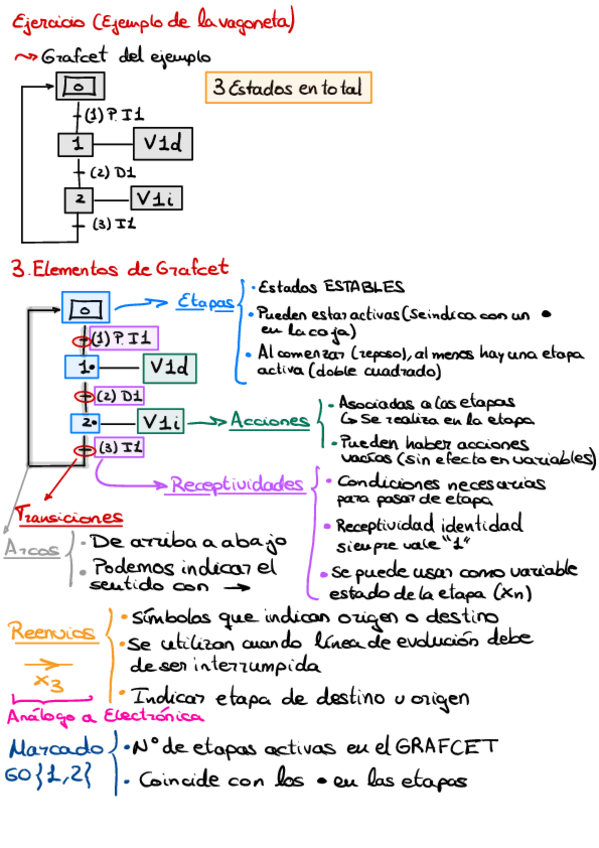 Ejercicio (Ejemplo de la vagoneta)
Grafcet del ejemplo
3 Estados en total
0
(1) P.I1
1
V1d
(2) D1
2
V1i
(3) I1
3. Elementos de Grafcet
0
Etapas
· Estados ESTABLES
· Pueden estar activas (Se indica con un •
en la caja)
· Al comenzar (reposo), al menos hay una etapa
activa (doble cuadrado)
(1) P. I1
1•
V1d
(2) D1
2•
V1i
(3) I1
Acciones
· Asociadas a las etapas
↳ Se realiza en la etapa
· Pueden haber acciones
vacías (sin efecto en variables)
Receptividades
· Condiciones necesarias
para pasar de etapa
· Receptividad identidad
siempre vale "1"
· Se puede usar como variable
estado de la etapa (Xn)
Transiciones
Arcos
· De arriba a abajo
· Podemos indicar el
sentido con →
Reenvios
X3
· Símbolos que indican origen o destino
· Se utilizan cuando línea de evolución debe
de ser interrumpida
· Indicar etapa de destino u origen
Análogo a Electrónica
Marcado
GO{1,2}
· Nº de etapas activas en el GRAFCET
· Coincide con los • en las etapas